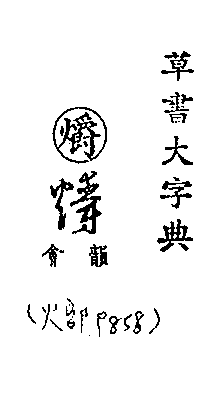 草書大字典
爝
韻會
(火部 P858)